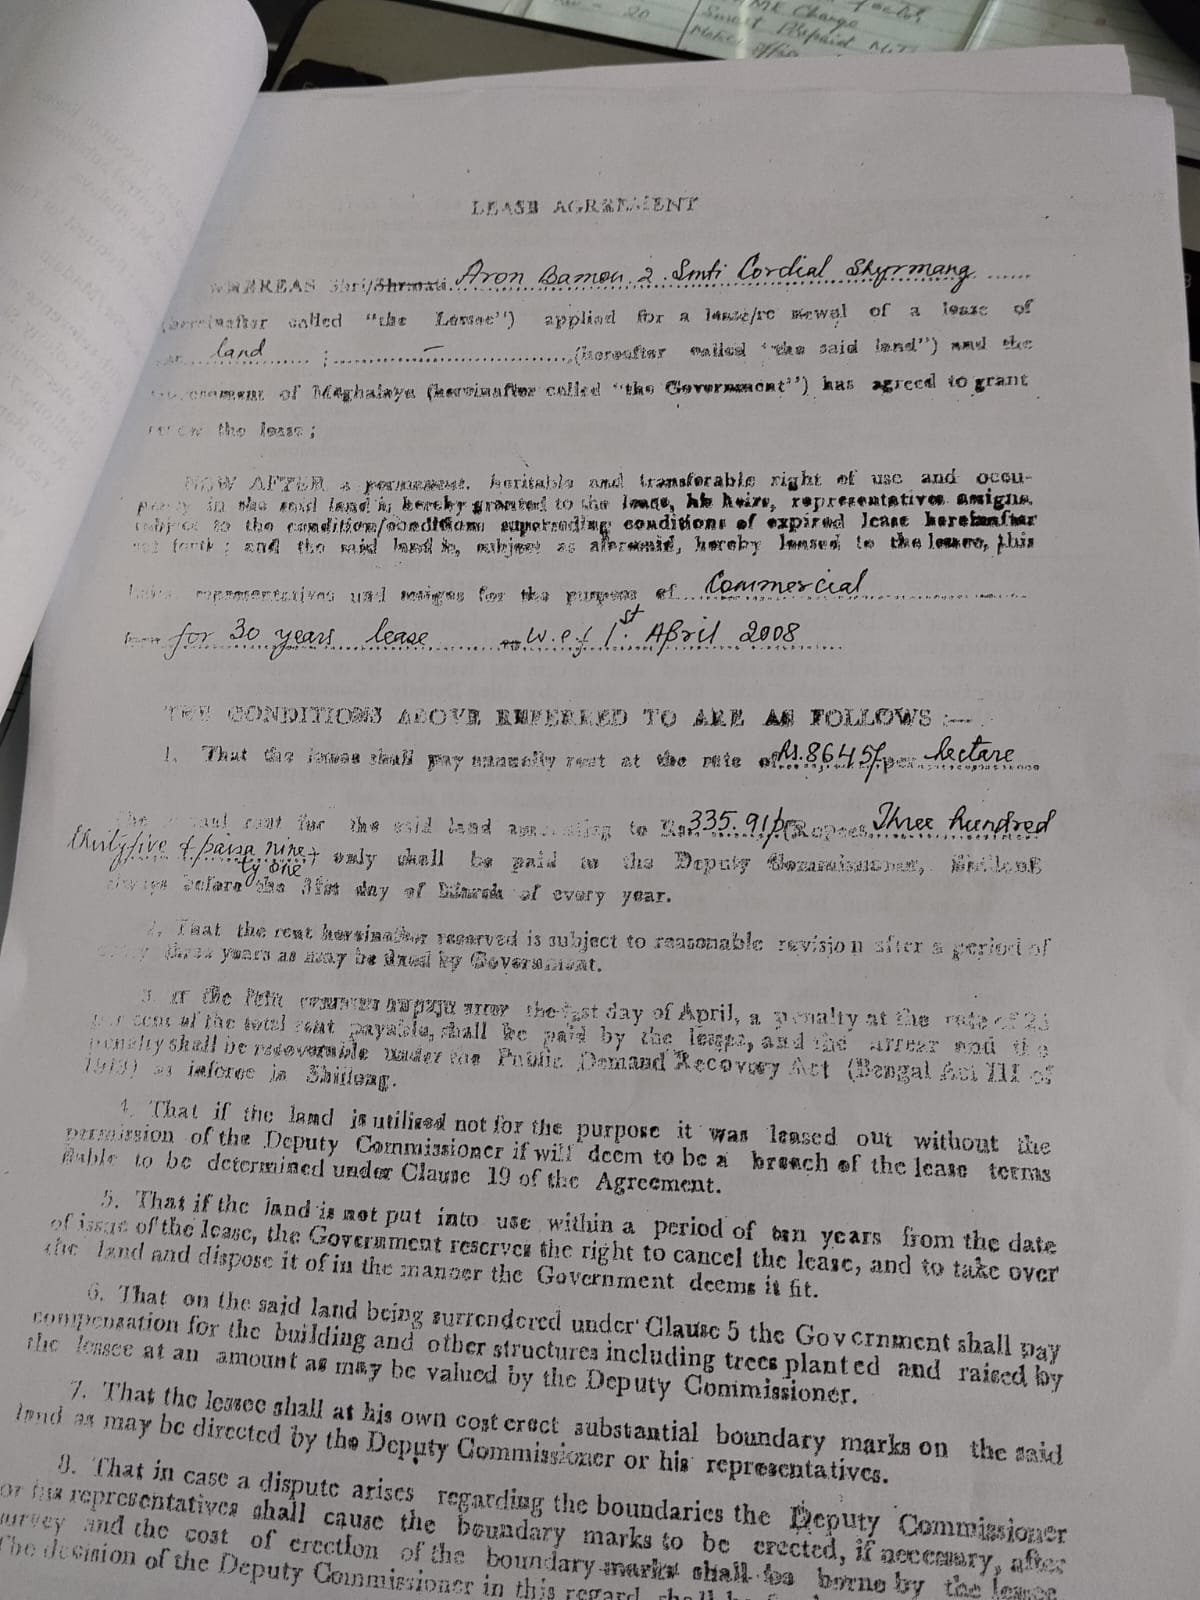 MK Change
20
Smart Prepaid
LEASE AGREEMENT
WHEREAS Shri/Shrimati Aron Bamon 2. Smti Cordial Shyrmang
(hereinafter called "the Lessee") applied for a lease/re newal of a lease of
land ; – (hereafter called "the said land") and the
of Meghalaya (hereinafter called "the Government") has agreed to grant
the lease;
NOW AFTER a permanent, heritable and transferable right of use and occu-
in the said land is hereby granted to the lease, his heirs, representatives assigns,
subject to the condition/conditions superseding conditions of expired lease hereinafter
set forth; and the said land is, subject as aforesaid, hereby leased to the lessee, this
representatives and assigns for the purpose of Commercial
for 30 years lease w.e.f 1st. April 2008
THE CONDITIONS ABOVE REFERRED TO ARE AS FOLLOWS :—
1. That the lessee shall pay annually rent at the rate of Rs.8645/ per hectare
rent for the said land amounting to Rs. 335.91/p (Rupees Three hundred
thirtyfive & paisa ninety one only shall be paid to the Deputy Commissioner, Shillong
always before the 31st day of March of every year.
2. That the rent hereinafter reserved is subject to reasonable revision after a period of
three years as may be fixed by Government.
3. If the rent remains unpaid after the 1st day of April, a penalty at the rate of 25
per cent of the total rent payable, shall be paid by the lessee, and the arrear and the
penalty shall be recoverable under the Public Demand Recovery Act (Bengal Act III of
1913) as inforce in Shillong.
4. That if the land is utilised not for the purpose it was leased out without the
permission of the Deputy Commissioner if will deem to be a breach of the lease terms
liable to be determined under Clause 19 of the Agreement.
5. That if the land is not put into use within a period of ten years from the date
of issue of the lease, the Government reserves the right to cancel the lease, and to take over
the land and dispose it of in the manner the Government deems it fit.
6. That on the said land being surrendered under Clause 5 the Government shall pay
compensation for the building and other structures including trees planted and raised by
the lessee at an amount as may be valued by the Deputy Commissioner.
7. That the lessee shall at his own cost erect substantial boundary marks on the said
land as may be directed by the Deputy Commissioner or his representatives.
8. That in case a dispute arises regarding the boundaries the Deputy Commissioner
or his representatives shall cause the boundary marks to be erected, if necessary, after
survey and the cost of erection of the boundary marks shall be borne by the lessee
The decision of the Deputy Commissioner in this regard shall be